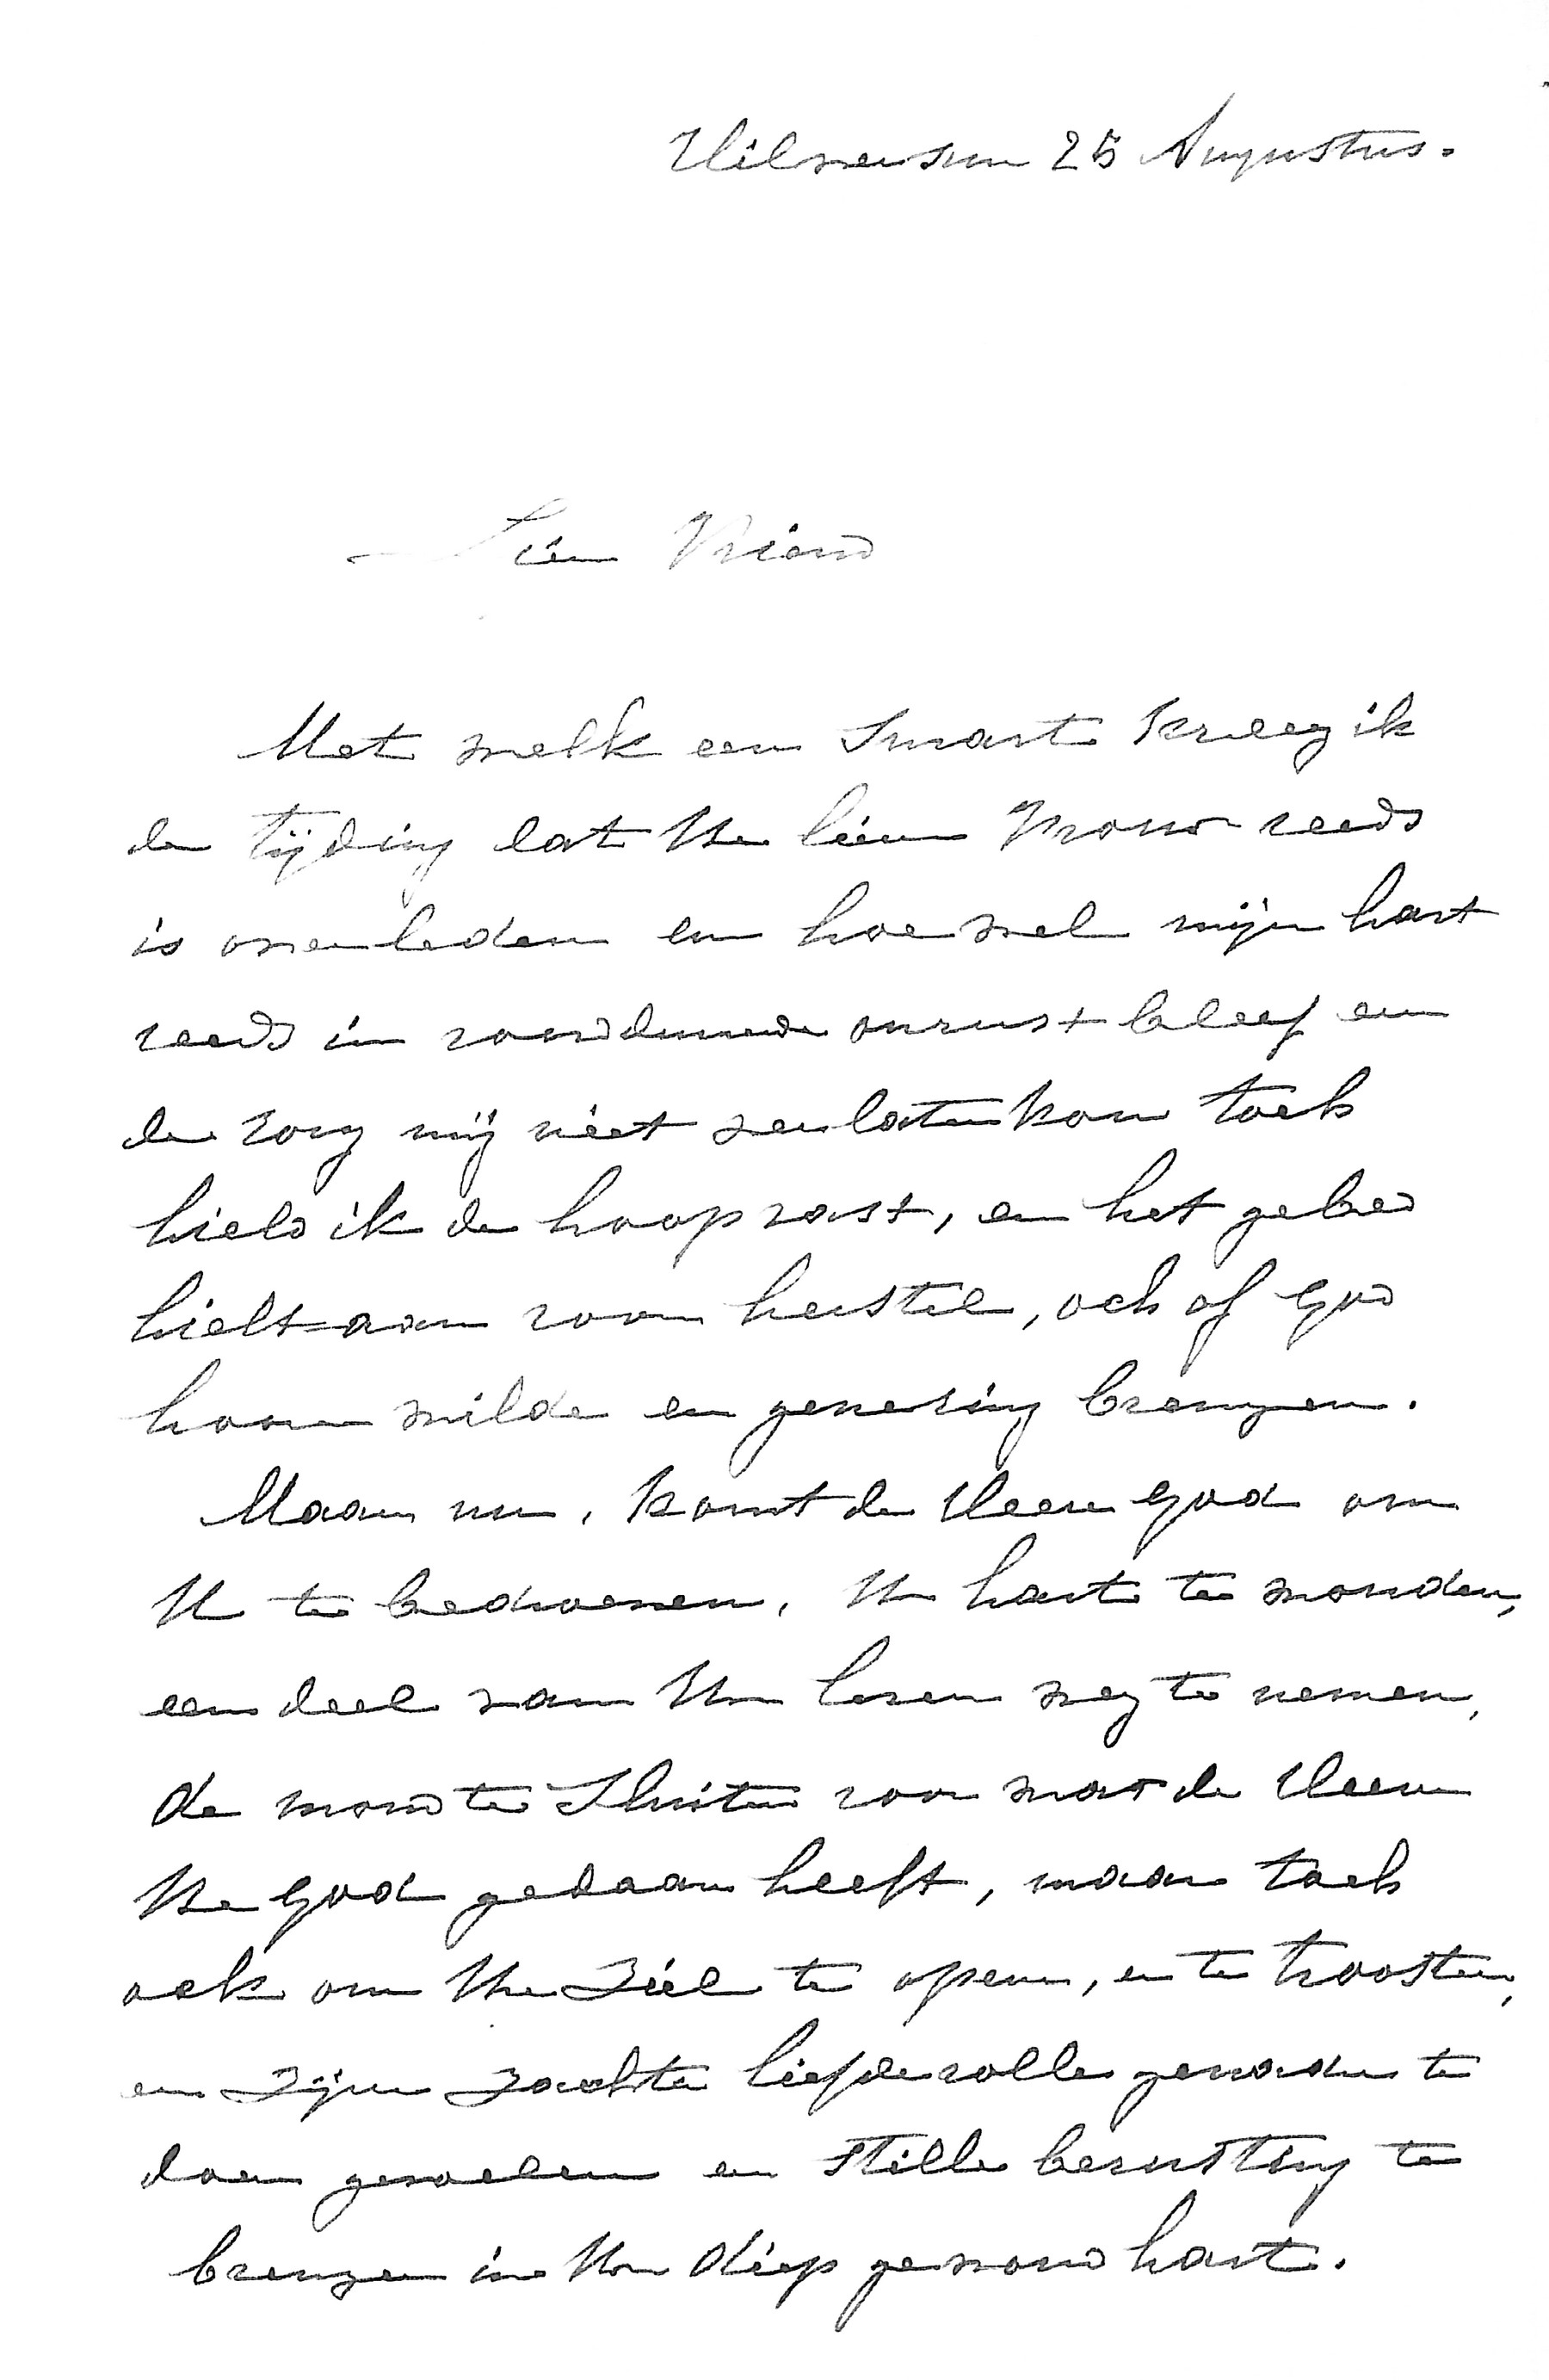 Hilversum 25 Augustus.
Lieve Vriend
Met welk een Smart kreeg ik
de tijding dat Uw lieve Vrouw reeds
is overleden en hoewel mijn hart
reeds in voortdurende onrust bleef en
de zorg mij niet verlaten kon toch
hield ik de hoop vast, en het gebed
hield aan voor herstel, och of God
hooren wilde en genezing brengen.
Maar nu, komt de Heere God om
U te bedroeven, Uw hart te wonden,
een deel van Uw leven weg te nemen,
de mond te Sluiten voor wat de Heere
Uw God gedaan heeft, maar toch
ook om Uw Ziel te openen, en te troosten,
en Zijne Zachte liefdevolle genade te
doen gevoelen en stille berusting te
brengen in Uw diep gewond hart.